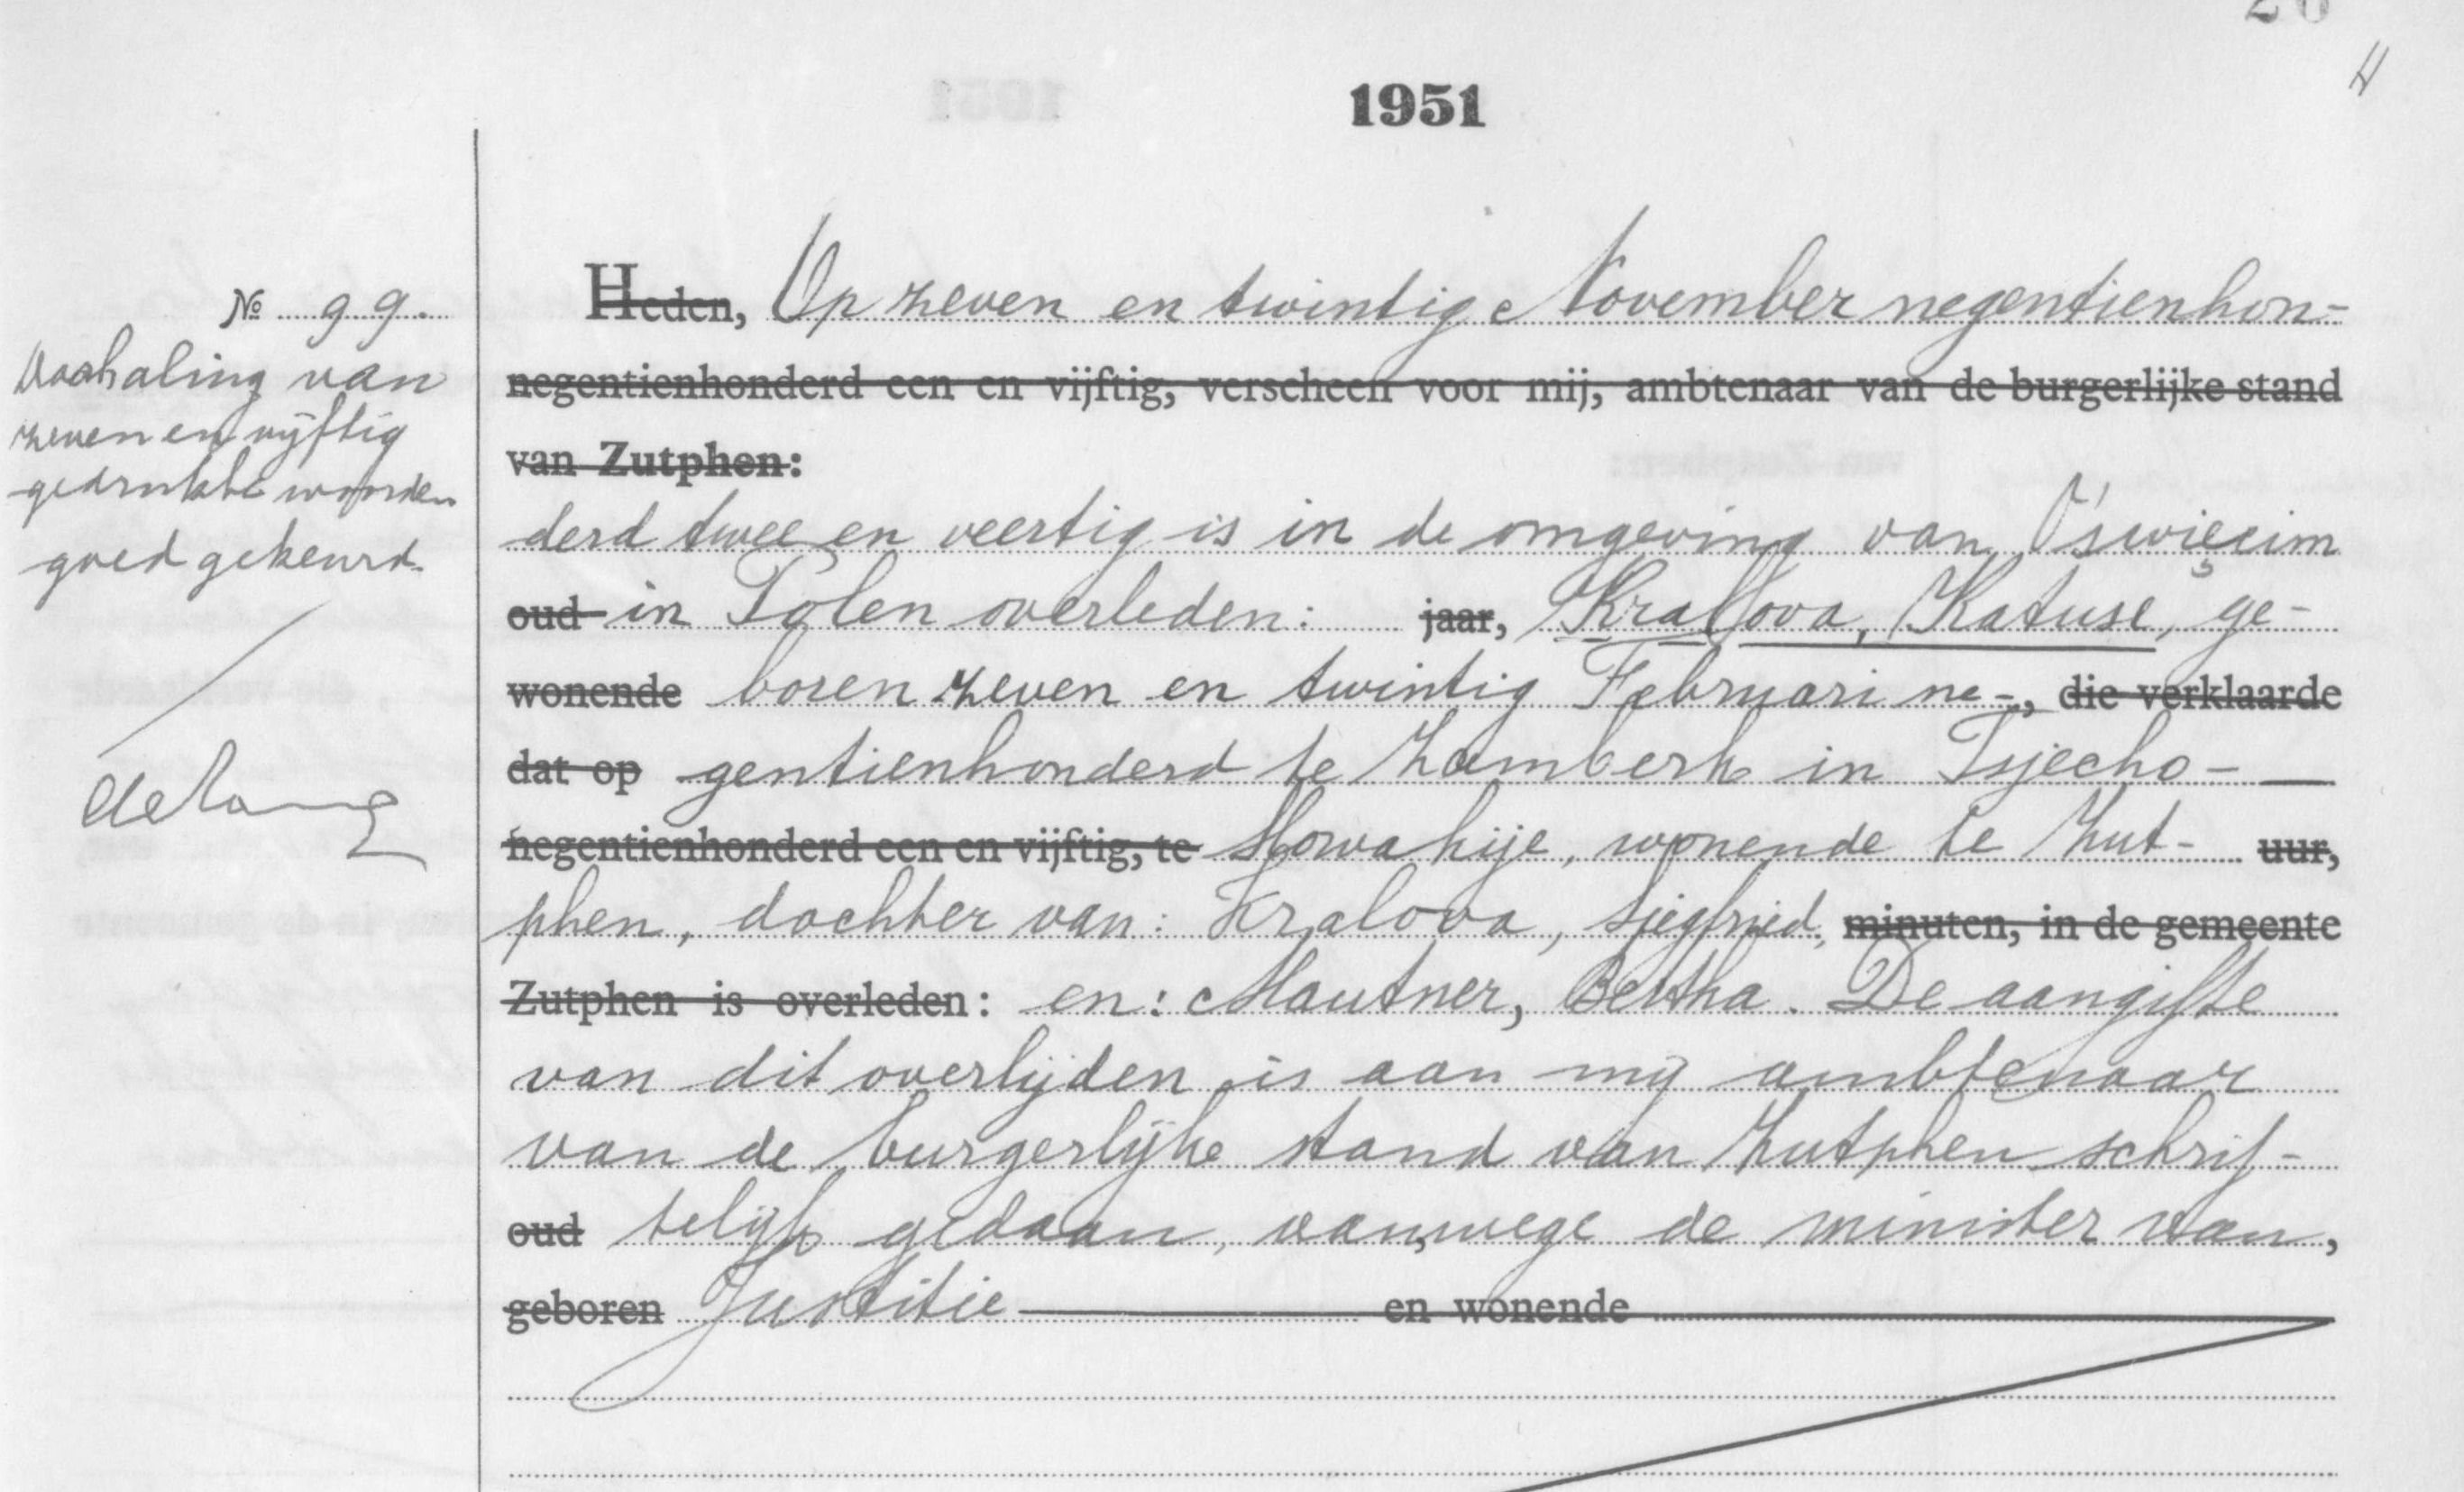 26
1951
№ 99.
Doorhaling van
zeven en vijftig
gedrukte woorden
goedgekeurd.
Heden, Op zeven en twintig November negentienhon-
negentienhonderd een en vijftig, verscheen voor mij, ambtenaar van de burgerlijke stand
van Zutphen:
derd twee en veertig is in de omgeving van Oświęcim
oud in Polen overleden: jaar, Kralova, Katuse, ge-
wonende boren zeven en twintig Februari ne-, die verklaarde
dat op gentienhonderd te Zamberk in Tsjecho-
negentienhonderd een en vijftig, te Slowakije, wonende te Zut- uur,
phen, dochter van: Kralova, Siegfried, minuten, in de gemeente
Zutphen is overleden: en: Mautner, Bertha. De aangifte
van dit overlijden is aan mij ambtenaar
van de burgerlijke stand van Zutphen schrif-
oud telijk gedaan, vanwege de minister van,
geboren Justitie en wonende